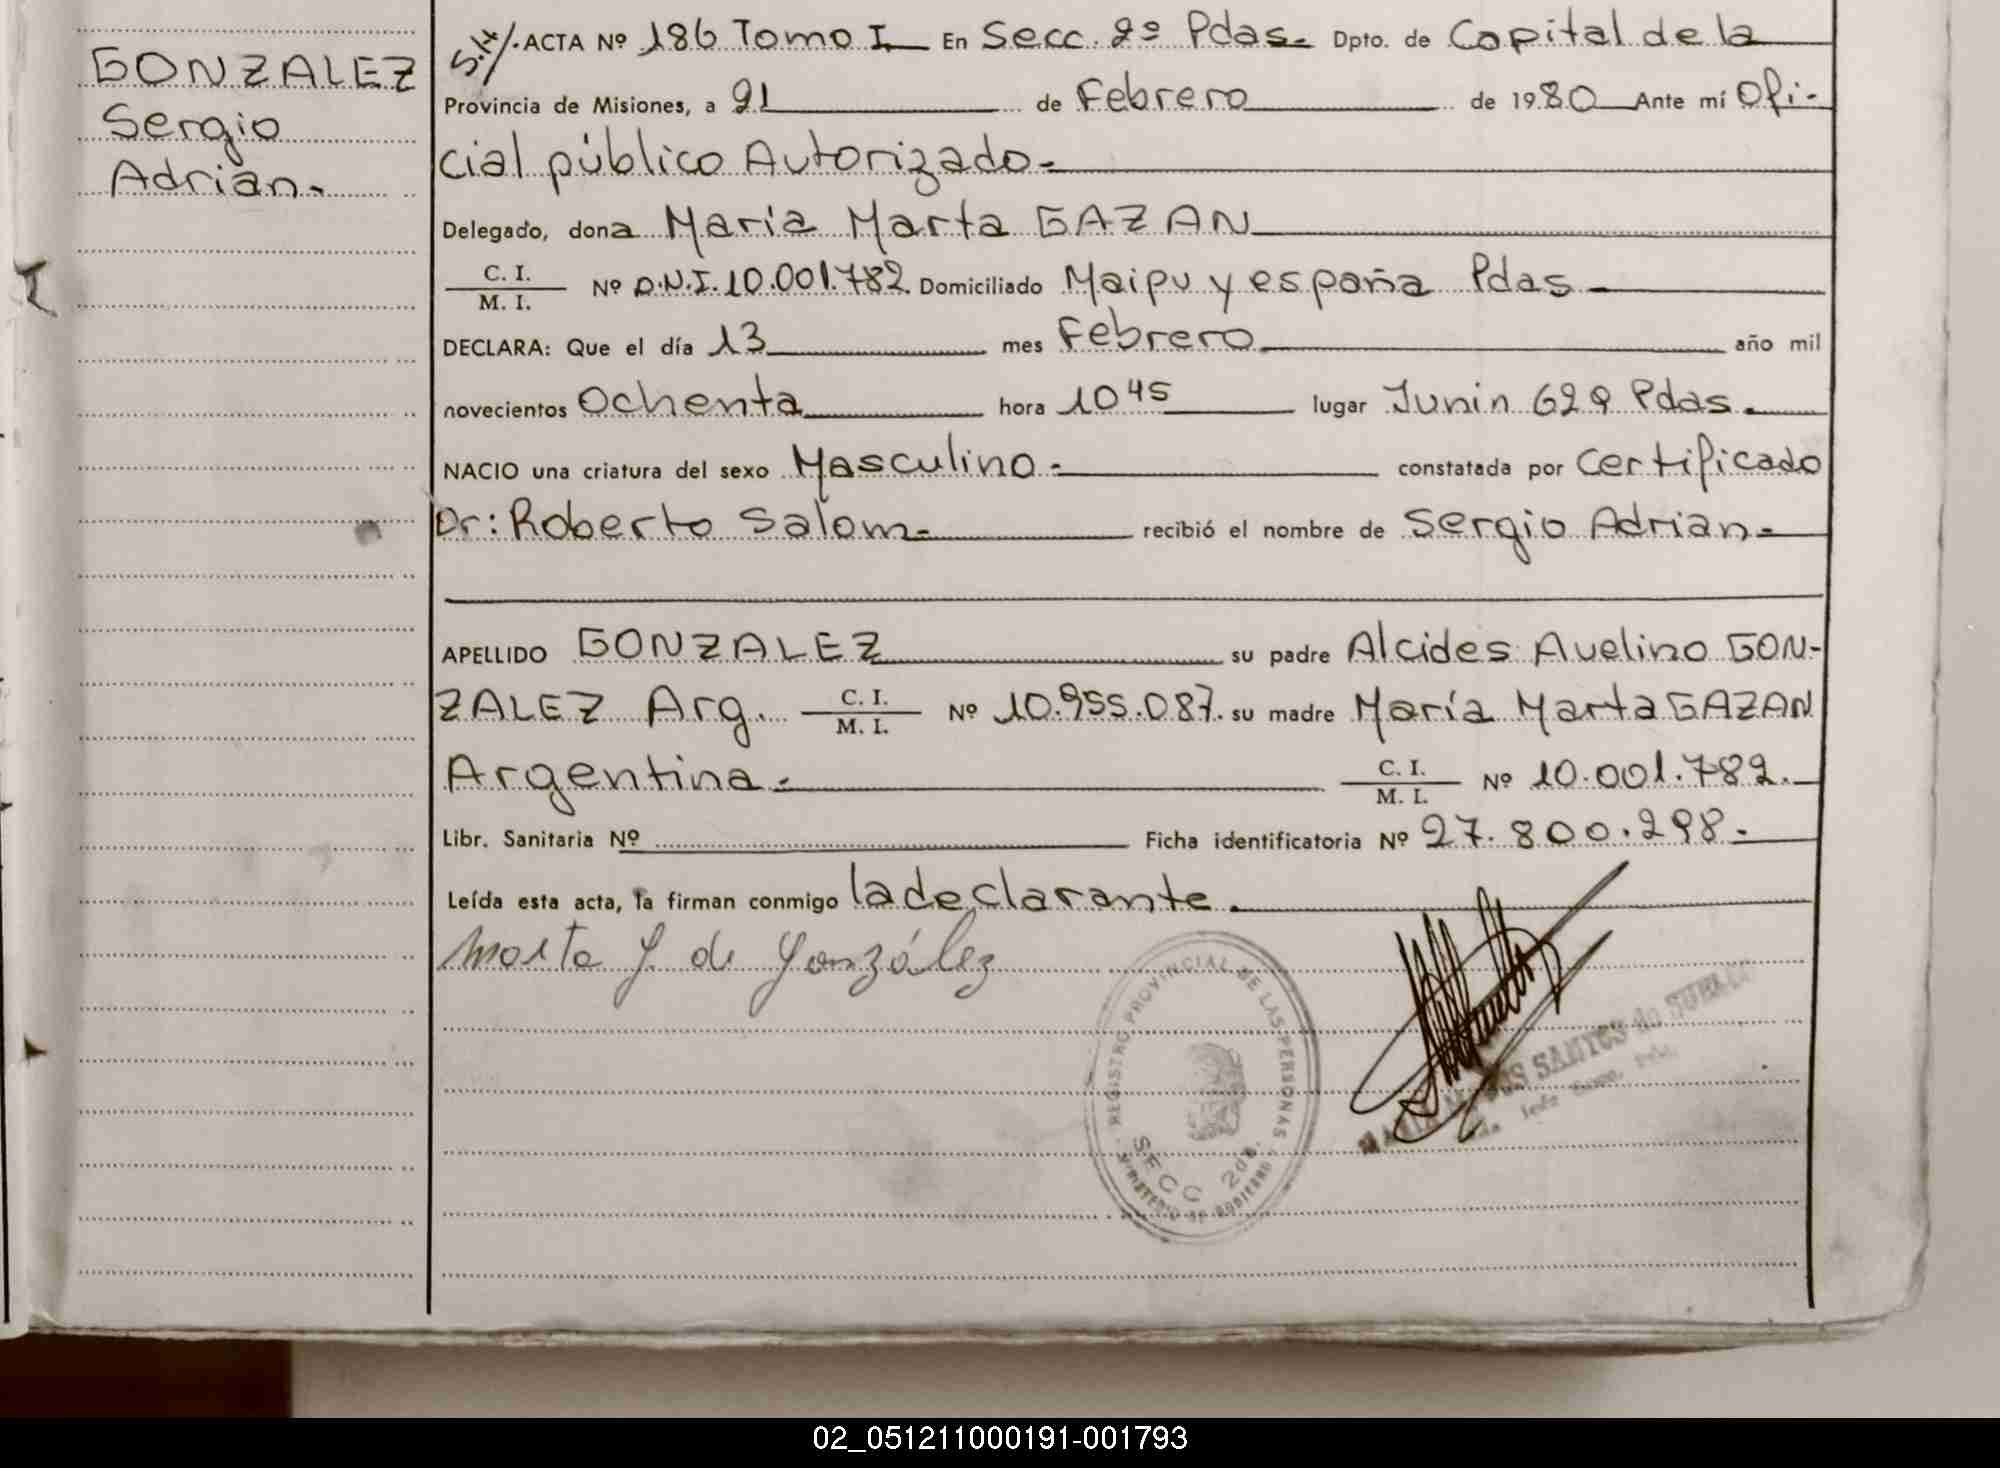 GONZALEZ
Sergio
Adrian.
S.H/. ACTA Nº 186 Tomo I En Secc. 2º Pdas. Dpto. de Capital de la
Provincia de Misiones, a 21 de Febrero de 1980 Ante mí Ofi-
cial público Autorizado.
Delegado, dona María Marta GAZAN
C. I.
M. I. Nº D.N.I. 10.001.782. Domiciliado Maipu y españa Pdas
DECLARA: Que el día 13 mes Febrero año mil
novecientos Ochenta hora 10 45 lugar Junin 629 Pdas.
NACIO una criatura del sexo Masculino. constatada por Certificado
Dr: Roberto Salom. recibió el nombre de Sergio Adrian.
APELLIDO GONZALEZ su padre Alcides Avelino GON-
ZALEZ Arg. C. I. M. I. Nº 10.955.087. su madre María Marta GAZAN
Argentina. C. I. M. I. Nº 10.001.782.
Libr. Sanitaria Nº Ficha identificatoria Nº 27.800.298.
Leída esta acta, la firman conmigo la declarante.
Marta G. de González
REGISTRO PROVINCIAL DE LAS PERSONAS
SECC 2da.
MINISTERIO DE GOBIERNO
SANTOS de
02_051211000191-001793